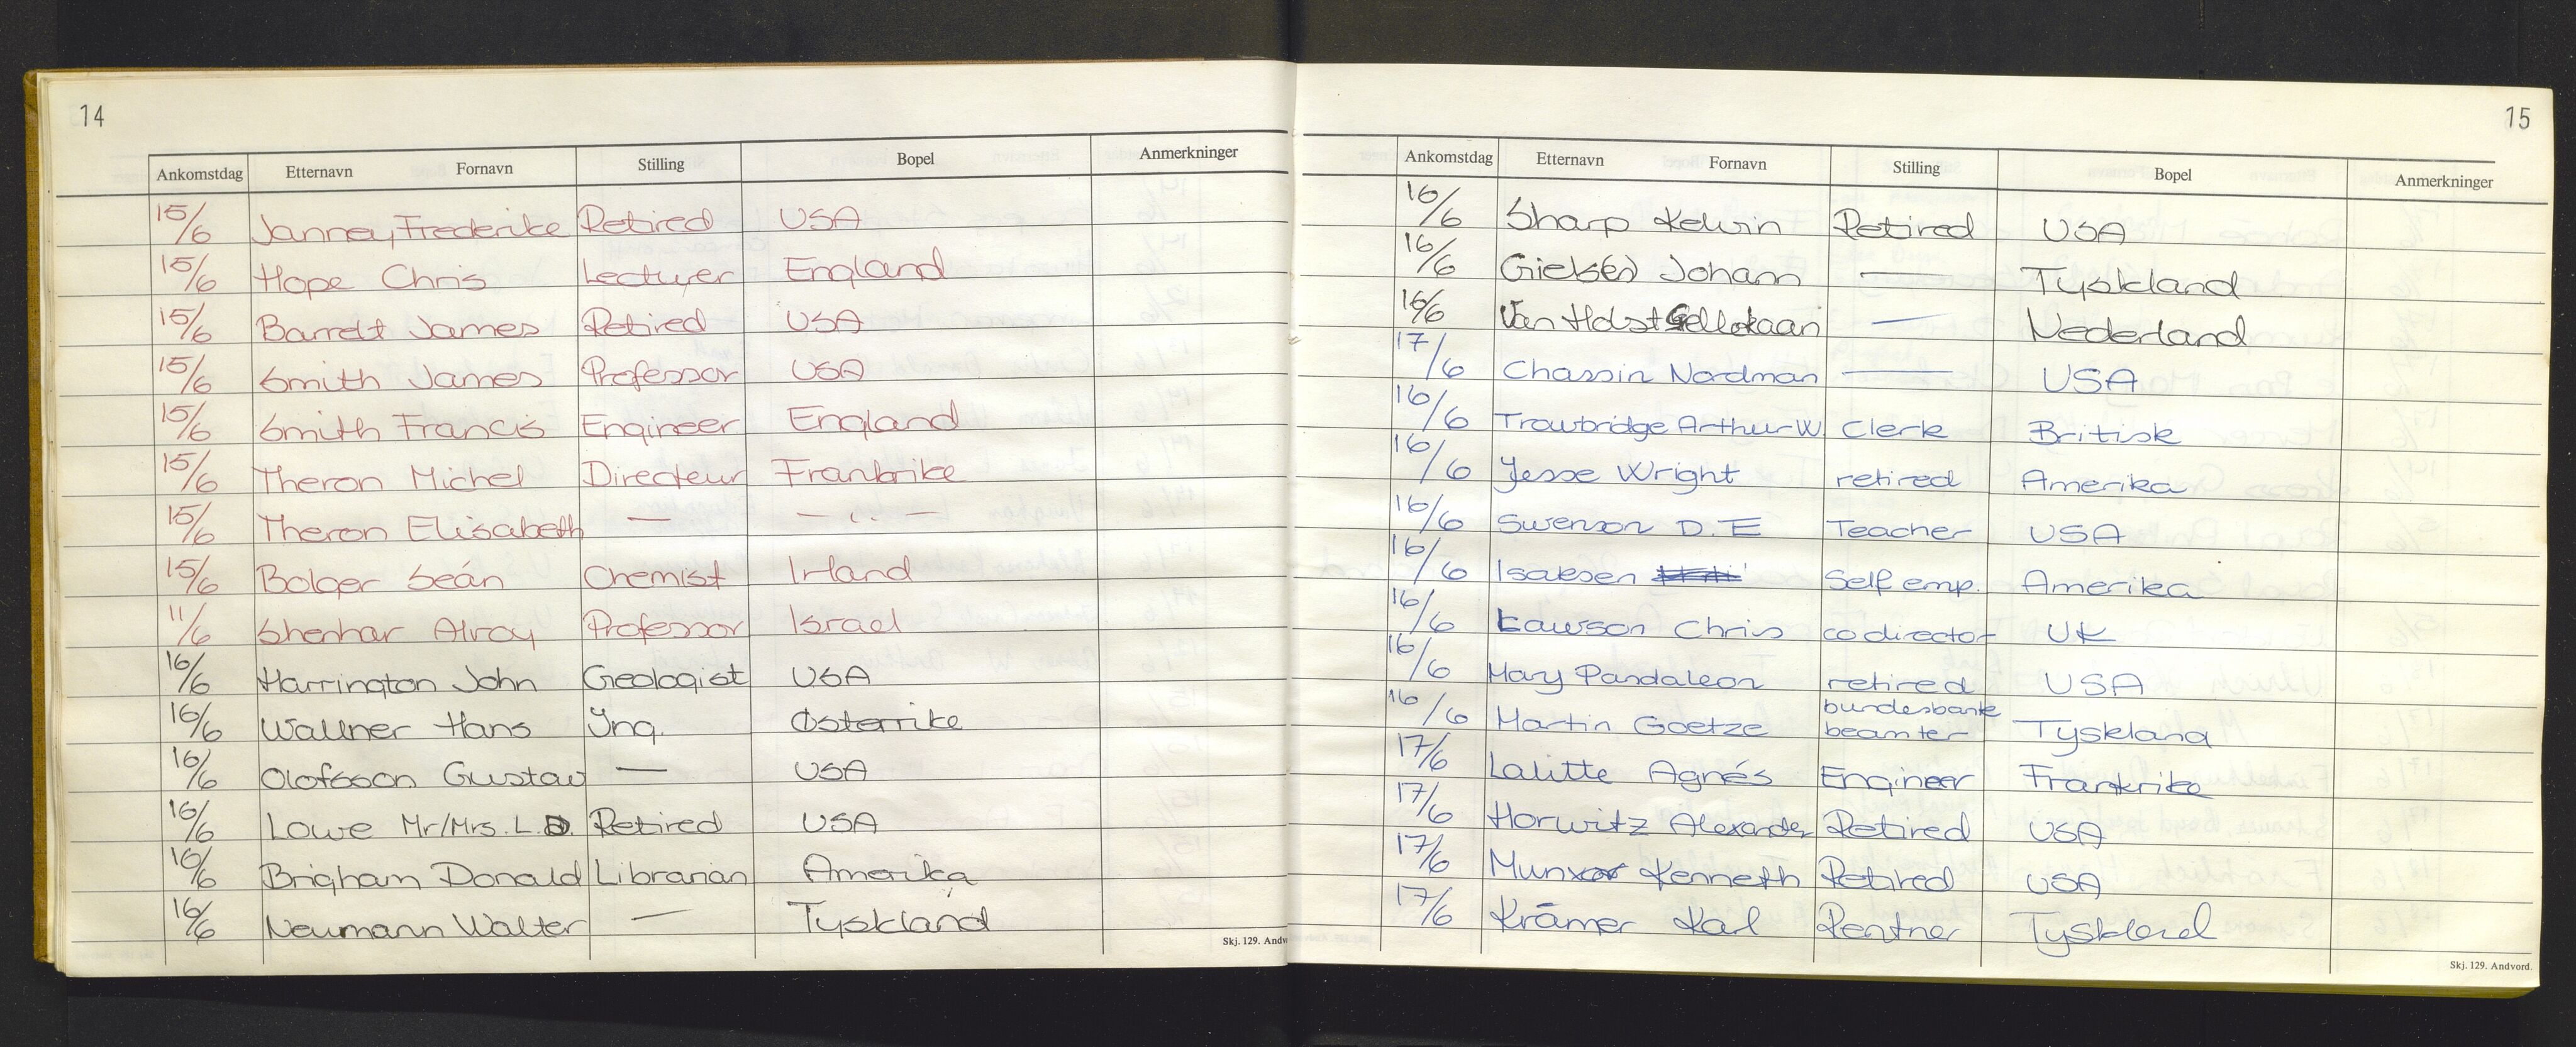 14
Ankomstdag Etternavn Fornavn Stilling Bopel Anmerkninger
15/6 Janney, Frederike Retired USA
15/6 Hope Chris Lecturer England
15/6 Barrett James Retired USA
15/6 Smith James Professor USA
15/6 Smith Francis Engineer England
15/6 Theron Michel Directeur Frankrike
15/6 Theron Elisabeth — — ,, —
15/6 Bolger Seán Chemist Irland
11/6 Shenhar Alroy Professor Israel
16/6 Harrington John Geologist USA
16/6 Wallner Hans Ing. Østerrike
16/6 Olofsson Gustav — USA
16/6 Lowe Mr/Mrs. L.D. Retired USA
16/6 Brigham Donald Librarian Amerika
16/6 Neumann Walter — Tyskland
Skj. 129. Andv
15
Ankomstdag Etternavn Fornavn Stilling Bopel Anmerkninger
16/6 Sharp Kelvin Retired USA
16/6 Johann — Tyskland
16/6 Van Holst — Nederland
17/6 Chassin Nordman — USA
16/6 Trowbridge Arthur W. Clerk Britisk
16/6 Jesse Wright retired Amerika
16/6 Swenson D.E Teacher USA
16/6 Isaksen Self emp. Amerika
16/6 Lawson Chris co director UK
16/6 Mary Pandaleon retired USA
16/6 Martin Goetze bundesbank beamter Tyskland
17/6 Lalitte Agnés Engineer Frankrike
17/6 Horwitz Alexander Retired USA
17/6 Kenneth Retired USA
17/6 Krämer Karl Rentner Tyskland
Skj. 129. Andvord.